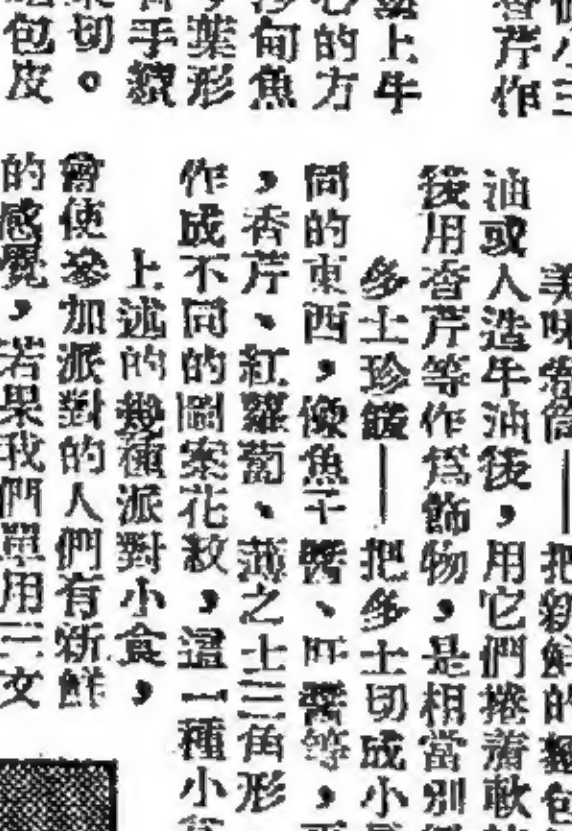 小三
香芹作
上牛
的方
沙甸魚
葉形
手續
切。
包皮
美味卷筒——把新鮮的麵包
油或人造牛油後，用它們捲着軟
後用香芹等作爲飾物，是相當別
多士珍饈——把多士切成小
間的東西，像魚子醬、吓醬等，
，香芹、紅蘿蔔、薄之士三角形
作成不同的圖案花紋，這一種小
上述的幾種派對小食，
會使參加派對的人們有新鮮
的感覺，若果我們單用三文